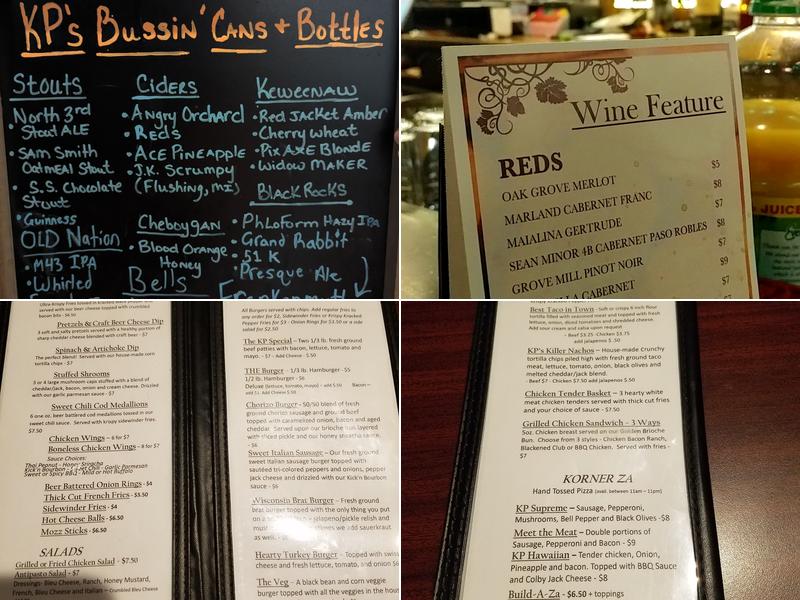 KP's Bussin' Cans + Bottles
Stouts
North 3rd
Stout ALE
• Sam Smith
Oatmeal Stout
• S.S. Chocolate
Stout
• Guinness
OLD Nation
• M43 IPA
• Whirled
Ciders
• Angry Orchard
• Reds
• Ace Pineapple
• J.K. Scrumpy
(Flushing, MI)
Cheboygan
• Blood Orange
Honey
Bells
Keweenaw
• Red Jacket Amber
• Cherry Wheat
• Pix Axe Blonde
• Widow Maker
BlackRocks
• PhLoForm Hazy IPA
• Grand Rabbit
• 51 K
• Presque Ale
Wine Feature
REDS
OAK GROVE MERLOT $5
MARLAND CABERNET FRANC $8
MAIALINA GERTRUDE $7
SEAN MINOR 4B CABERNET PASO ROBLES $8
GROVE MILL PINOT NOIR $7
CABERNET $9
$7
JUICE
bacon bits - $6.50
Pretzels & Craft Beer Cheese Dip
3 soft and salty pretzels served with a healthy portion of sharp
cheddar cheese blended with craft beer - $7
Spinach & Artichoke Dip
The perfect blend! Served with our house-made corn
tortilla chips - $7
Stuffed Shrooms
5 or 6 large mushroom caps stuffed with a blend of
cheddar/jack, bacon, onion and cream cheese. Drizzled
with our garlic parmesan sauce - $7
Sweet Chili Cod Medallions
6 one oz. beer battered cod medallions tossed in our
sweet chili sauce. Served with krispy sidewinder fries.
$7.50
Chicken Wings – 6 for $7
Boneless Chicken Wings – 8 for $7
Sauce Choices:
Thai Peanut - Honey Sriracha
Kick'n Bourbon - Sweet Chili - Garlic Parmesan
Sweet or Spicy BBQ - Mild or Hot Buffalo
Beer Battered Onion Rings - $4
Thick Cut French Fries - $3.50
Sidewinder Fries - $4
Hot Cheese Balls - $6.50
Mozz Sticks - $6.50
SALADS
Grilled or Fried Chicken Salad - $7.50
Antipasto Salad - $7
Dressings- Bleu Cheese, Ranch, Honey Mustard,
French, Bleu Cheese and Italian – Crumbled Bleu Cheese
All Burgers served with chips. Add regular fries to
any order for $2, Sidewinder Fries or Krispy Kracked
Pepper Fries for $3 - Onion Rings for $3.50 or a side
salad for $2.50
The KP Special – Two 1/3 lb. fresh ground
beef patties with bacon, lettuce, tomato and
mayo. - $7 - Add Cheese - $.50
THE Burger - 1/3 lb. Hamburger - $5
1/2 lb. Hamburger - $6
Deluxe (lettuce, tomato, mayo) - add $.50 Bacon –
add $1 Add Cheese $.50
Chorizo Burger - 50/50 blend of fresh
ground chorizo sausage and ground beef
topped with caramelized onion, bacon and aged
cheddar. Served upon our brioche bun layered
with sliced pickle and our honey sriracha sauce.
- $6
Sweet Italian Sausage – Our fresh ground
sweet Italian sausage burger topped with
sautéed tri-colored peppers and onions, pepper
jack cheese and drizzled with our Kick'n Bourbon
sauce - $6
Wisconsin Brat Burger – Fresh ground
brat burger topped with the only thing you put
on a – jalapeno/pickle relish and
we add sauerkraut
as well.
Hearty Turkey Burger – Topped with swiss
cheese and fresh lettuce, tomato, and onion $6
The Veg – A black bean and corn veggie
burger topped with all the veggies in the house
Best Taco in Town - Soft or crispy 6 inch flour
tortilla filled with seasoned meat and topped with fresh
lettuce, onion, diced tomatoes and shredded cheese.
Add sour cream and salsa upon request
- Beef $3.25 Chicken $3.75
add jalapenos $.50
KP's Killer Nachos – House-made Crunchy
tortilla chips piled high with fresh ground taco
meat, lettuce, tomato, onion, black olives and
melted cheddar/jack blend.
- Beef $7 - Chicken $7.50 add jalapenos $.50
Chicken Tender Basket – 3 hearty white
meat chicken tenders served with thick cut fries
and your choice of sauce - $7.50
Grilled Chicken Sandwich - 3 Ways
5oz. Chicken breast served on our Golden Brioche
Bun. Choose from 3 styles - Chicken Bacon Ranch,
Blackened Club or BBQ Chicken. Served with fries -
$7
KORNER ZA
Hand Tossed Pizza (avail. between 11am – 11pm)
KP Supreme – Sausage, Pepperoni,
Mushrooms, Bell Pepper and Black Olives -$8
Meet the Meat – Double portions of
Sausage, Pepperoni and Bacon - $9
KP Hawaiian – Tender chicken, Onion,
Pineapple and bacon. Topped with BBQ Sauce
and Colby Jack Cheese - $8
Build-A-Za - $6.50 + toppings